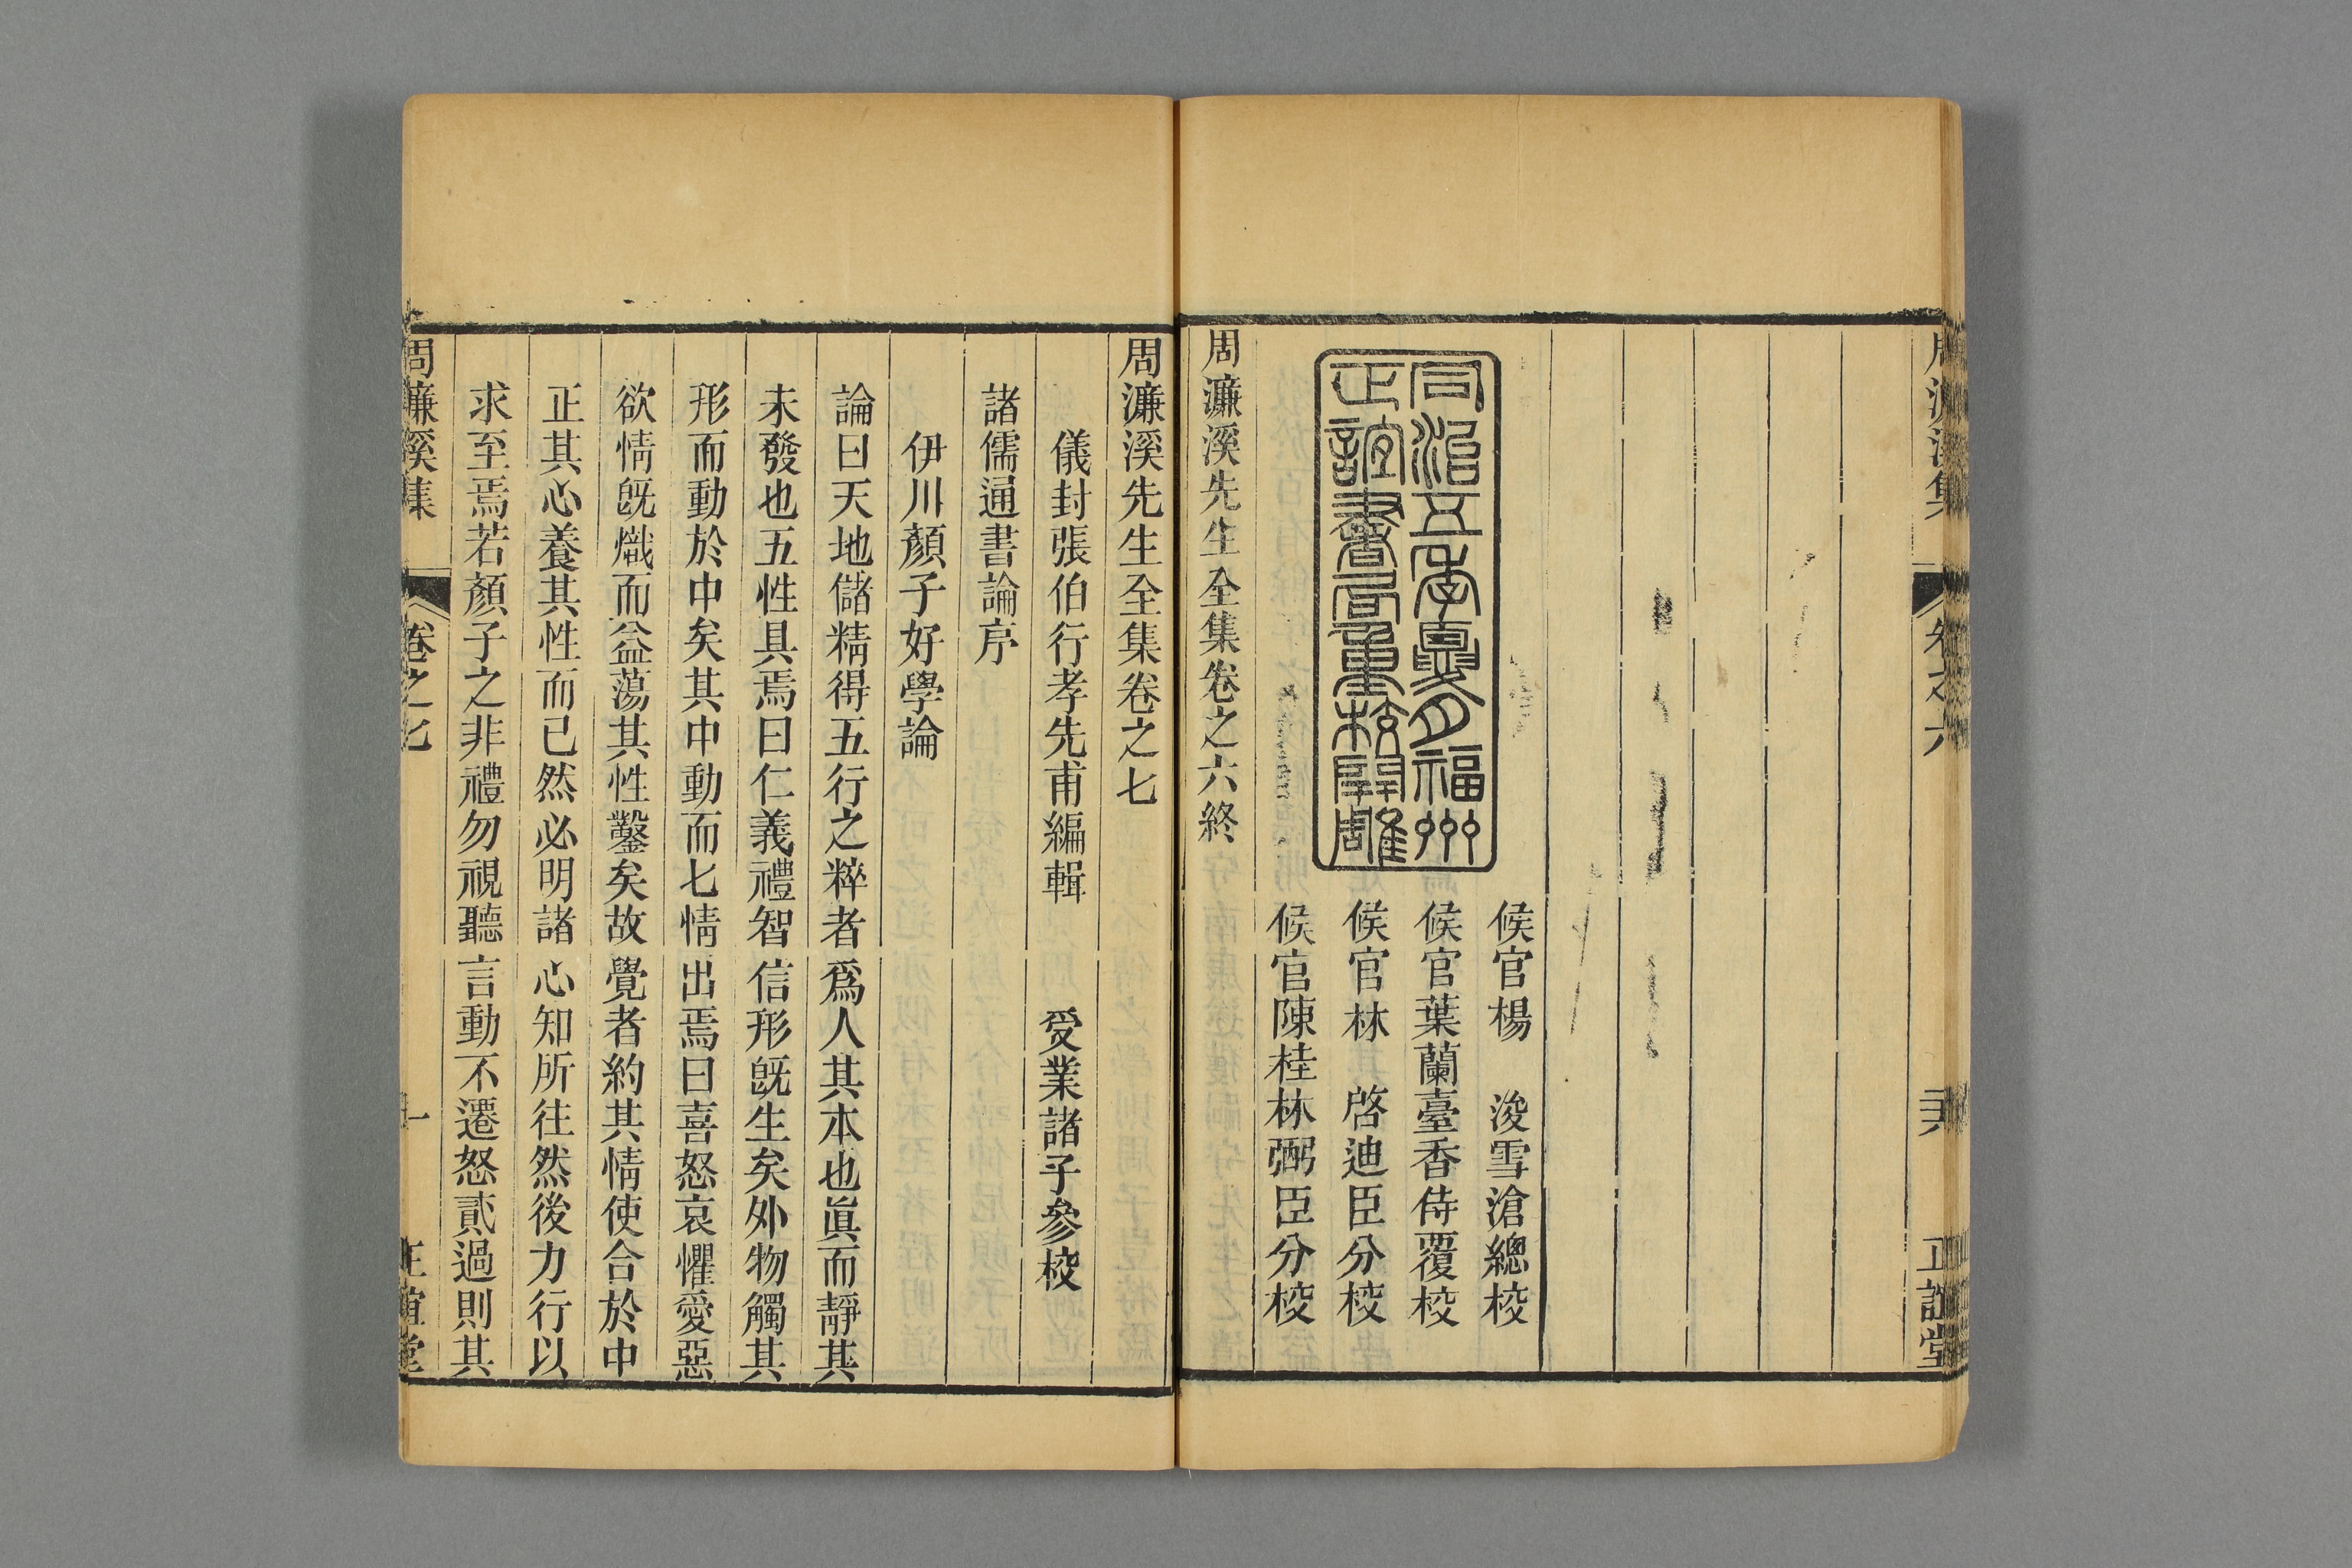 周濂溪集 卷之六 正誼堂
候官楊 浚雪滄總校
候官葉蘭臺香侍覆校
候官林 啓迪臣分校
候官陳桂林弼臣分校
同治五年夏月福州
正誼書局重校開雕
周濂溪先生全集卷之六終
周濂溪先生全集卷之七
儀封張伯行孝先甫編輯 受業諸子參校
諸儒通書論序
伊川顏子好學論
論曰天地儲精得五行之粹者爲人其本也眞而靜其
未發也五性具焉曰仁義禮智信形旣生矣外物觸其
形而動於中矣其中動而七情出焉曰喜怒哀懼愛惡
欲情旣熾而益蕩其性鑿矣故覺者約其情使合於中
正其心養其性而已然必明諸心知所往然後力行以
求至焉若顏子之非禮勿視聽言動不遷怒貳過則其
周濂溪集 卷之七 一 正誼堂